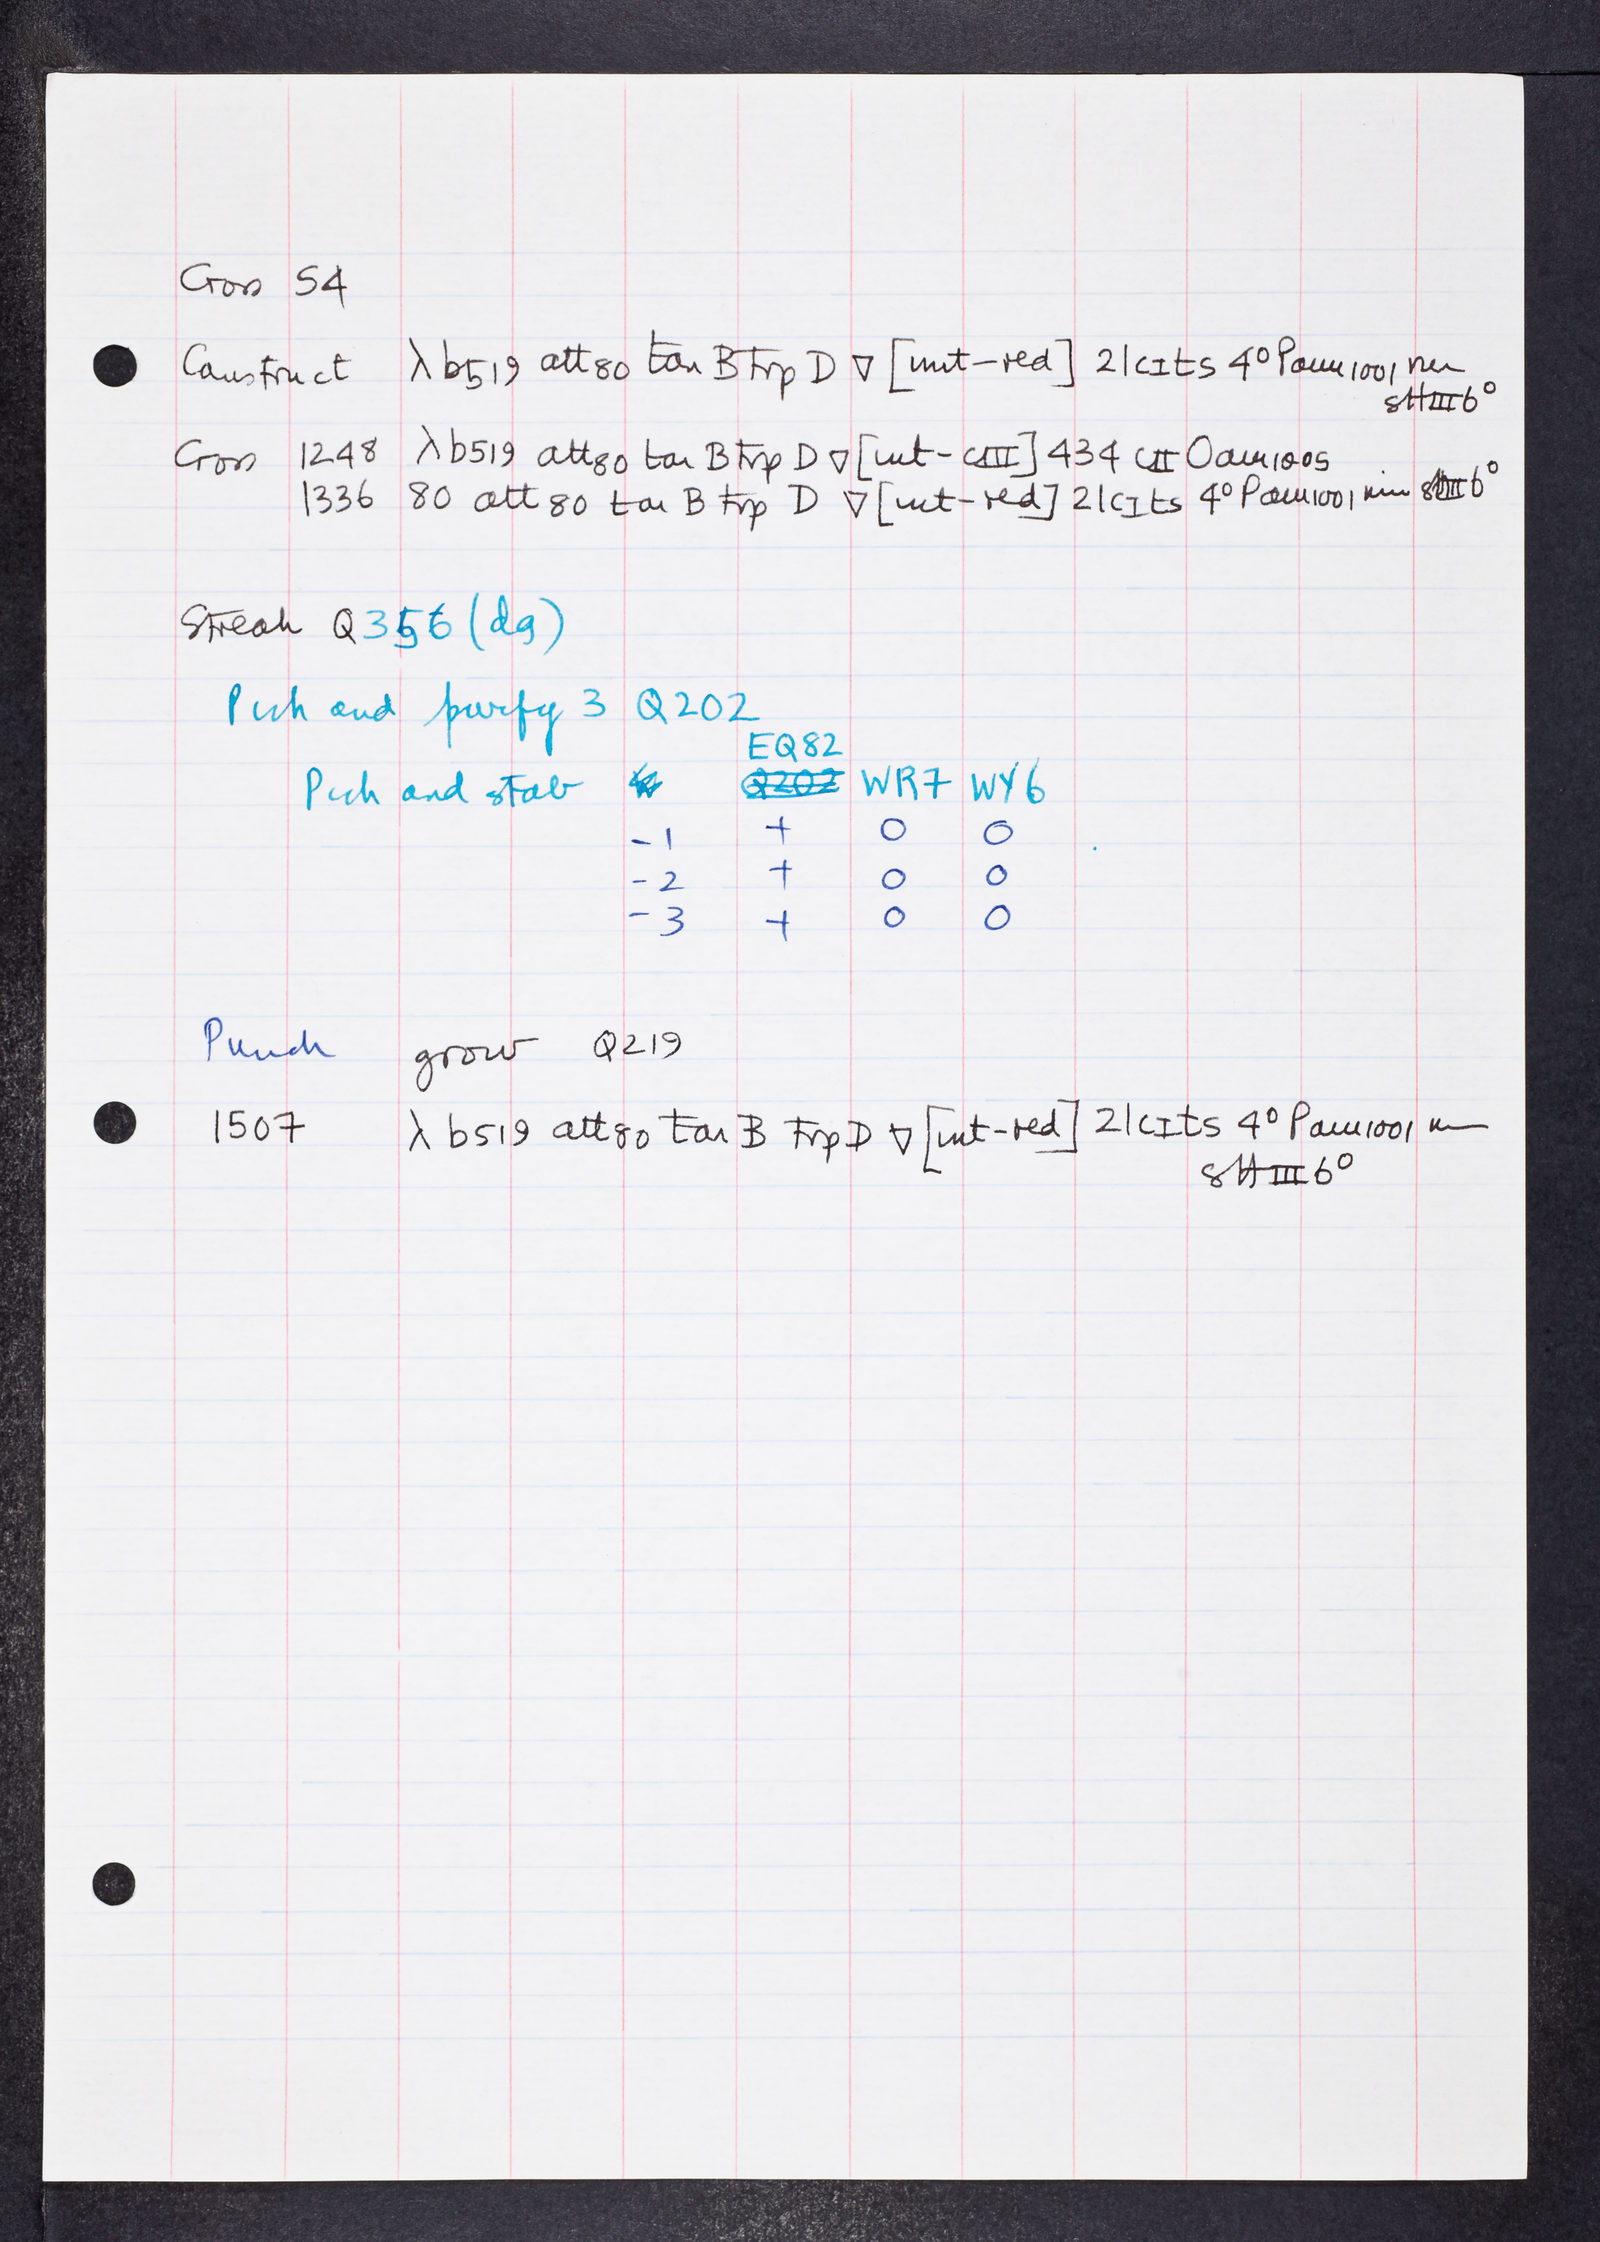 Cross 54
Construct λ b519 att80 ton B trp D ∇ [int-red] 21 cIts 4° Pam1001 nin
sHIII6°
Cross 1248 λ b519 att80 ton B trp D ∇ [int-cIII] 434 cII Oam1005
1336 80 att 80 ton B trp D ∇ [int-red] 21 cIts 4° Pam1001 nin sHIII6°
Streak Q356 (dg)
Pick and purify 3 Q202
EQ82
Pick and stab Q202 WR7 WY6
-1 + 0 0
-2 + 0 0
-3 + 0 0
Punch grow Q219
1507 λ b519 att80 ton B trp D ∇ [int-red] 21 cIts 4° Pam1001 nin
sHIII6°